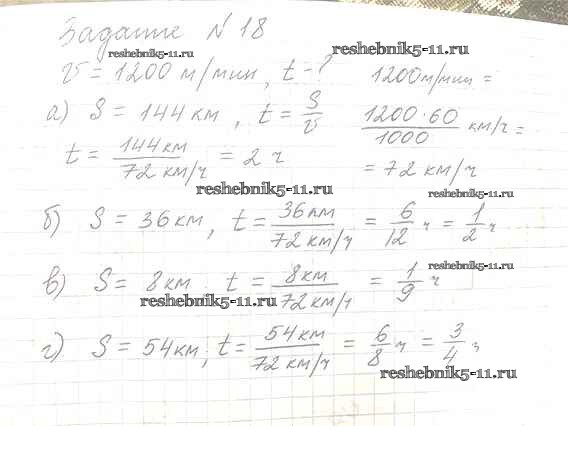 Задание №18
reshebnik5-11.ru reshebnik5-11.ru
v = 1200 м/мин, t - ? 1200 м/мин =
а) S = 144 км, t = S/v 1200·60/1000 км/ч =
t = 144 км/72 км/ч = 2 ч = 72 км/ч
reshebnik5-11.ru reshebnik5-11.ru
б) S = 36 км, t = 36 км/72 км/ч = 6/12 ч = 1/2 ч
reshebnik5-11.ru
в) S = 8 км t = 8 км/72 км/ч = 1/9 ч
reshebnik5-11.ru
г) S = 54 км, t = 54 км/72 км/ч = 6/8 ч = 3/4 ч
reshebnik5-11.ru